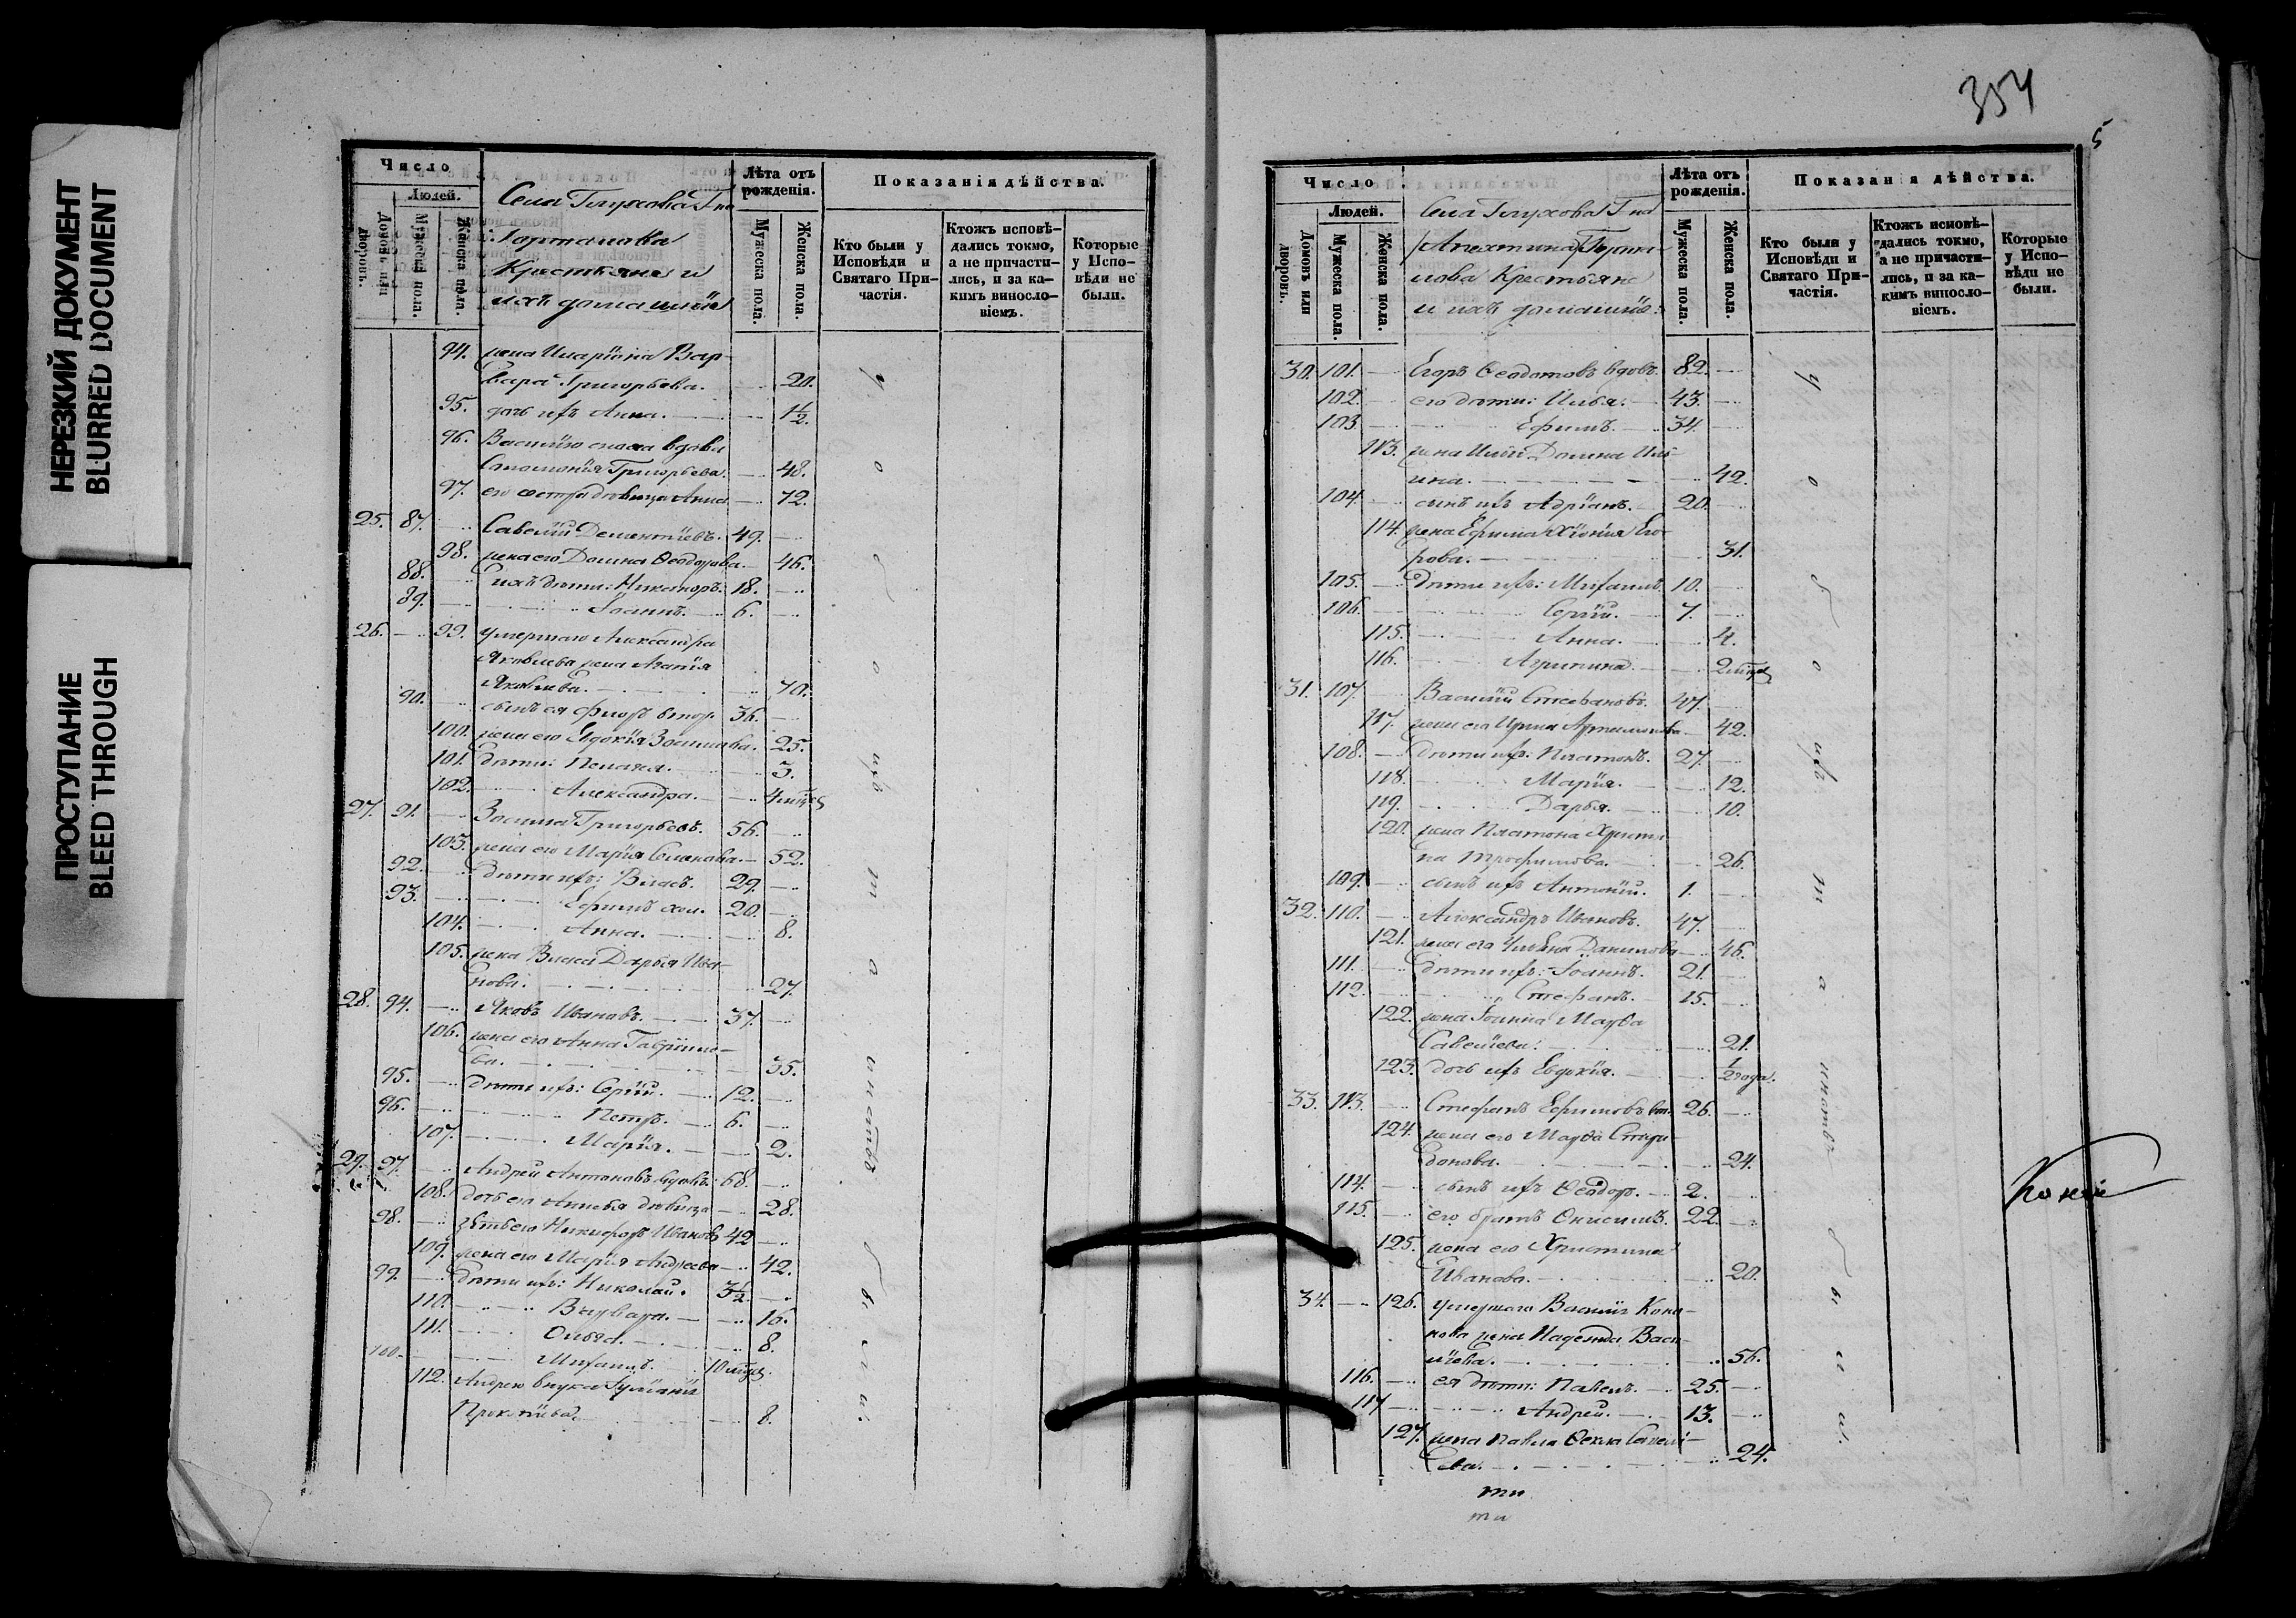 НЕРЕЗКИЙ ДОКУМЕНТ
BLURRED DOCUMENT
ПРОСТУПАНИЕ
BLEED THROUGH
Число
Людей.
Домовъ или дворовъ.
Мужеска пола.
Женска пола.
Села Глухова Г на
Крестьяне и
ихъ домашнїе
Лѣта отъ рожденія.
Мужеска пола.
Женска пола.
Показанія дѣйства.
Кто были у Исповѣди и Святаго Причастія.
Ктожъ исповѣдались токмо, а не причастились, и за какимъ винословіемъ.
Которые у Исповѣди не были.
94. жена Иларїона Вар-
вара Григорьева. 20.
95. дочь ихъ Анна. 1/2.
96. Василїю сноха вдова
Соломонїя Григорьева. 48.
97. его сестра дѣвица Анна 72.
25. 87. Савелїй Дементїевъ. 49.
98. жена его Домна Ѳеодорова. 46.
88. ихъ дѣти: Никаноръ. 18.
89. Іоаннъ. 6.
26. 99. умершаго Александра
Яковлева жена Агатїя
Яковлева. 70.
90. сынъ ея Флоръ втор. 36.
100. жена его Евдокїя Зосимова. 25.
101. дѣти: Пелагея. 3.
102. Александра. 4 мѣс
27. 91. Зосима Григорьевъ. 56.
103. жена его Марїя Семенова. 52.
92. дѣти ихъ: Власъ. 29.
93. Ефимъ хол. 20.
104. Анна. 8.
105. жена Власа Дарья Ива-
нова. 27.
28. 94. Яковъ Ивановъ. 37.
106. жена его Анна Гаврїило-
ва. 35.
95. дѣти ихъ: Сергїй. 12.
96. Петръ. 6.
107. Марїя. 2.
29. 97. Андрей Антоновъ вдовъ. 68.
108. дочь его дѣвица 28.
98. зять его Никифоръ Ивановъ 42
109. жена его Марїя Андреева 42.
99. дѣти ихъ: Николай. 3 1/2.
110. Варвара. 16.
111. Ольга. 8.
100. Михаилъ. 10 мѣс.
112. Андрею внука Іулїанїя
Прокопїева. 8.
у о б о ихъ т а инствъ б ы л и.
354
5
Число
Людей.
Домовъ или дворовъ.
Мужеска пола.
Женска пола.
Села Глухова Г на
Апехтина
Крестьяне
и ихъ домашнїе:
Лѣта отъ рожденія.
Мужеска пола.
Женска пола.
Показанія дѣйства.
Кто были у Исповѣди и Святаго Причастія.
Ктожъ исповѣдались токмо, а не причастились, и за какимъ винословіемъ.
Которые у Исповѣди не были.
30. 101. Егоръ Ѳеодотовъ вдовъ. 82.
102. его дѣти: Илья. 43.
103. Ефимъ. 34.
113. жена Ильи Домна Иль-
ина. 42.
104. сынъ ихъ Адрїанъ. 20.
114. жена Ефима Хїонїя Его-
рова. 31.
105. дѣти ихъ: Михаилъ. 10.
106. Сергїй. 7.
115. Анна. 4.
116. Агрипина. 2 мѣс
31. 107. Василїй Стефановъ. 47.
117. жена его Ирина 42.
108. дѣти ихъ: Платонъ. 27.
118. Марїя. 12.
119. Дарья. 10.
120. жена Платона Христи
на Трофимова. 26.
109. сынъ ихъ Антонїй. 1.
32. 110. Александръ Ивановъ. 47.
121. жена его Ульяна Данилова 46.
111. дѣти ихъ: Іоаннъ. 21.
112. Стефанъ. 15.
122. жена Іоанна Марфа
Савельева. 21.
123. дочь ихъ Евдокїя. 1/2 года.
33. 113. Стефанъ Ефимовъ вт. 26.
124. жена его Марфа Спири-
донова. 24.
114. сынъ ихъ Ѳеодоръ. 2.
115. его братъ Онисимъ. 22.
125. жена его Христина
Иванова. 20.
34. 126. умершаго Василїя Коно-
нова жена Надежда Васи-
лїева. 56.
116. ея дѣти: Павелъ. 25.
117 Андрей. 13.
127. жена Павла Ѳекла Савелї-
ева. 24.
у о б о ихъ т а инствъ б ы л и.